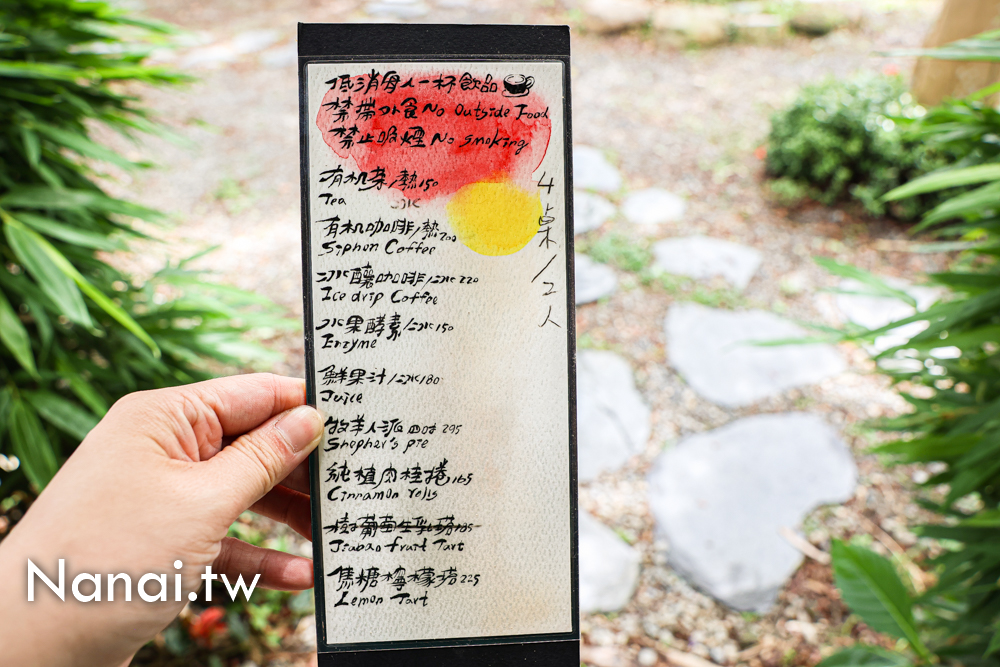 低消每人一杯飲品
禁帶外食 No Outside Food
禁止吸煙 No smoking
有机茶/熱150
冰
Tea
有机咖啡/熱200
Siphon Coffee
冰釀咖啡/冰220
Ice drip Coffee
水果酵素/冰150
Enzyme
鮮果汁/冰180
Juice
牧羊人派 四味 295
Shepher's pie
純植肉桂捲165
Cinnamon rolls
樹葡萄生乳塔195
Jiabao fruit Tart
焦糖檸檬塔225
Lemon Tart
4桌/2人
Nanai.tw